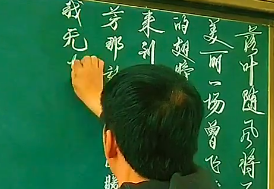 落叶随风将
美丽一场曾飞
的翅膀
来到
芳那
我无